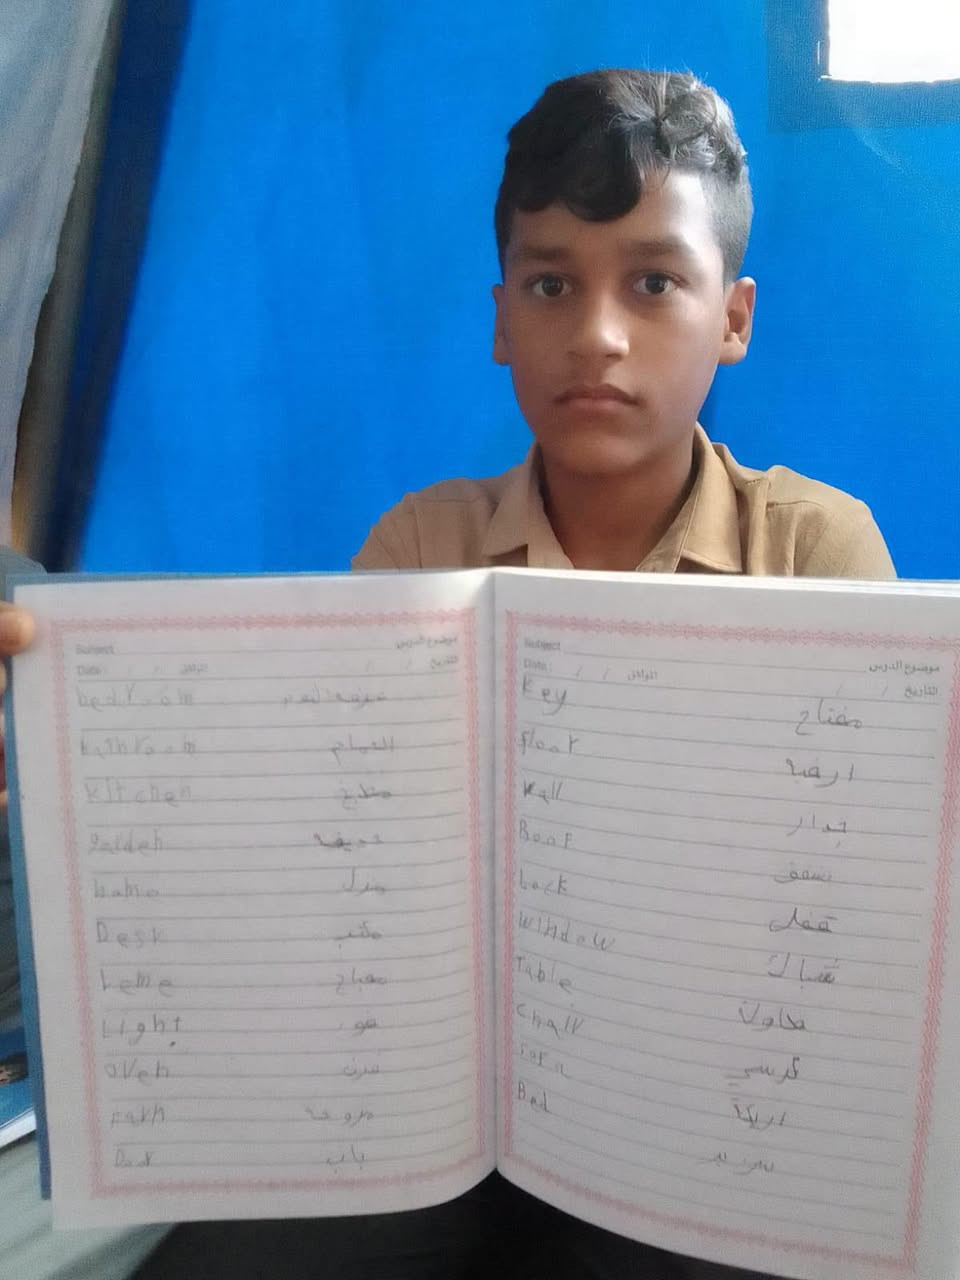 Subject موضوع الدرس
Date: / / الموافق / / التاريخ
bedroom غرفه النوم
bathroom الحمام
kitchen مطبخ
garden حديقه
home منزل
Desk مكتب
Leme مصباح
Light ضو
oven فرن
Fakh مروحة
Dor باب
Subject موضوع الدرس
Date: / / الموافق / / التاريخ
Key مفتاح
floor ارضيه
Wall جدار
Roof سقف
Lock قفل
Window شباك
Table طاولة
Chair كرسي
اريكة
Bed سرير